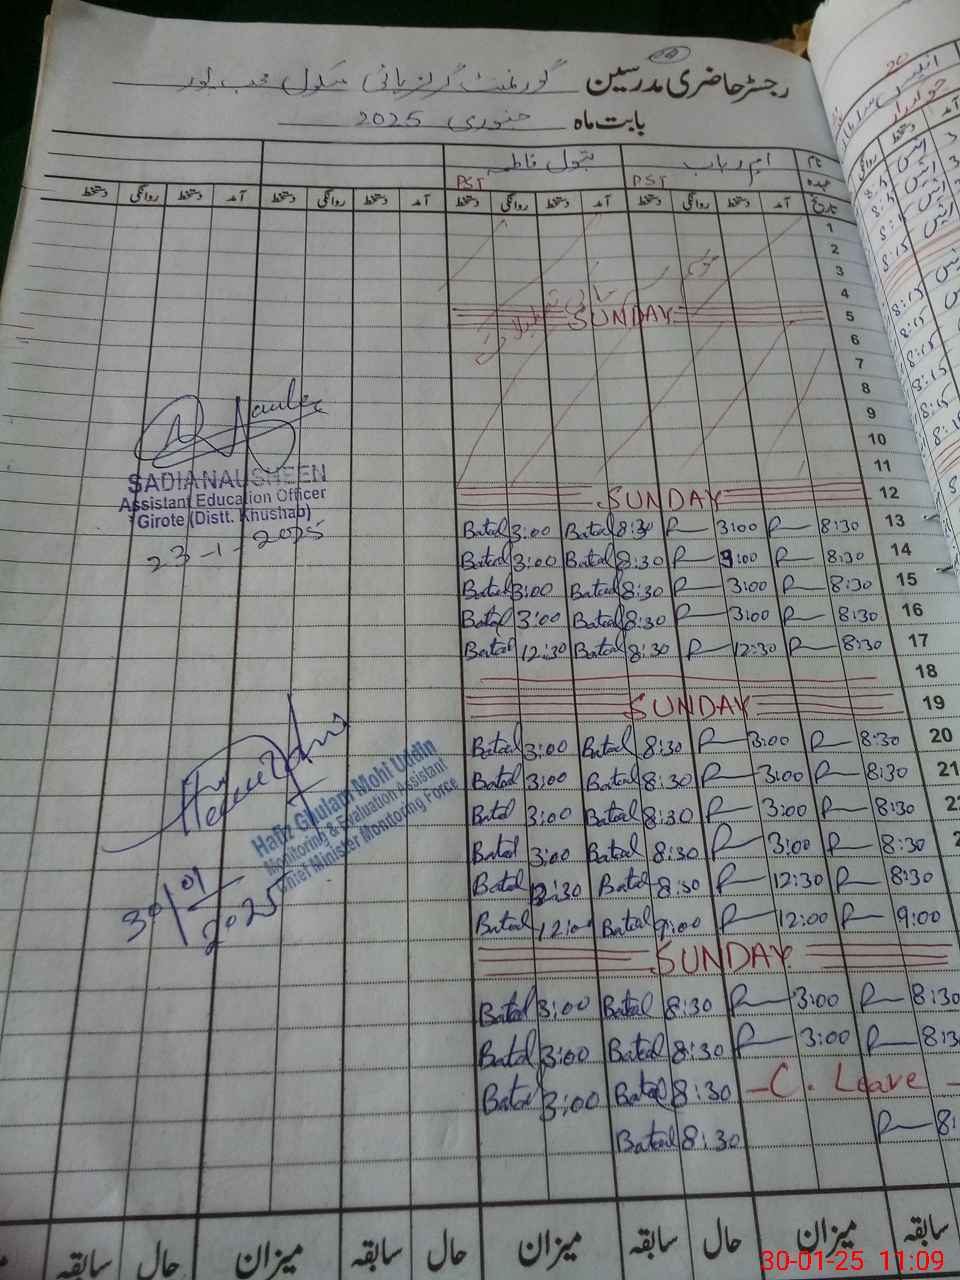 رجسٹر حاضری مدرسین گورنمنٹ گرلز ہائی سکول محب پور
بابت ماہ جنوری 2025
نام ام رباب بتول فاطمہ
عہدہ PST PST
تاریخ آمد دستخط روانگی دستخط آمد دستخط روانگی دستخط آمد دستخط روانگی دستخط آمد دستخط روانگی دستخط
1
2
3
4
SUNDAY 5
6
7
8
9
10
11
SUNDAY 12
Batool 3:00 Batool 8:30 R 3:00 R 8:30 13
Batool 3:00 Batool 8:30 R 3:00 R 8:30 14
Batool 3:00 Batool 8:30 R 3:00 R 8:30 15
Batool 3:00 Batool 8:30 R 3:00 R 8:30 16
Batool 12:30 Batool 8:30 R 12:30 R 8:30 17
18
SUNDAY 19
Batool 3:00 Batool 8:30 R 3:00 R 8:30 20
Batool 3:00 Batool 8:30 R 3:00 R 8:30 21
Batool 3:00 Batool 8:30 R 3:00 R 8:30 2
Batool 3:00 Batool 8:30 R 3:00 R 8:30 2
Batool 12:30 Batool 8:30 R 12:30 R 8:30
Batool 12:00 Batool 9:00 R 12:00 R 9:00
SUNDAY
Batool 3:00 Batool 8:30 R 3:00 R 8:30
Batool 3:00 Batool 8:30 R 3:00 R 8:3
Batool 3:00 Batool 8:30 - C. Leave -
Batool 8:30 R 8:
سابقہ میزان حال سابقہ میزان حال سابقہ میزان حال سابقہ
SADIA NAUSHEEN
Assistant Education Officer
Girote (Distt. Khushab)
23-1-2025
Hafiz Ghulam Mohi Uddin
Monitoring & Evaluation Assistant
Chief Minister Monitoring Force
30/01/2025
30-01-25 11:09